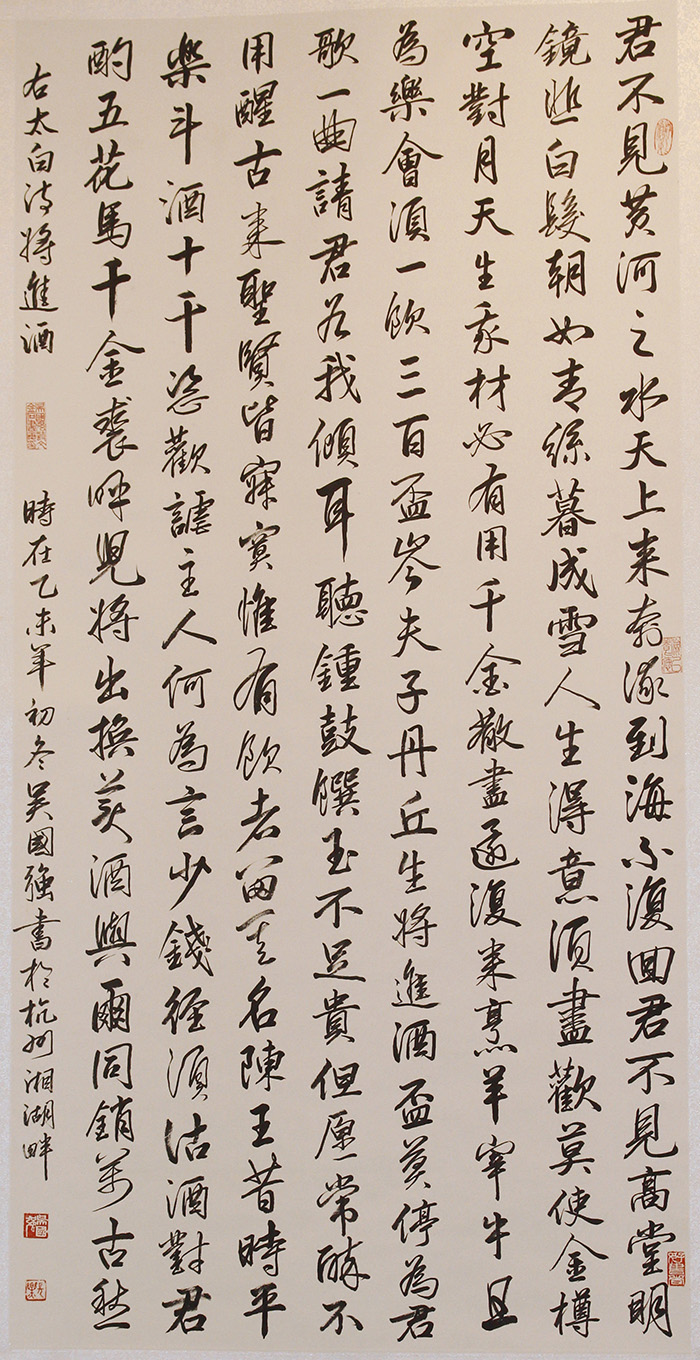 君不見黄河之水天上来奔流到海不復回君不見高堂明
鏡悲白髮朝如青絲暮成雪人生得意須盡歡莫使金樽
空對月天生我材必有用千金散盡還復来烹羊宰牛且
為樂會須一飲三百盃岑夫子丹丘生将進酒盃莫停為君
歌一曲請君為我傾耳聽鍾鼓饌玉不足貴但愿常醉不
用醒古来聖賢皆寂寞惟有飲者留其名陳王昔時平
樂斗酒十千恣歡謔主人何為言少錢徑須沽酒對君
酌五花馬千金裘呼兒将出換美酒與爾同銷萬古愁
右太白诗将進酒
時在乙未年初冬吴國強書於杭州湘湖畔